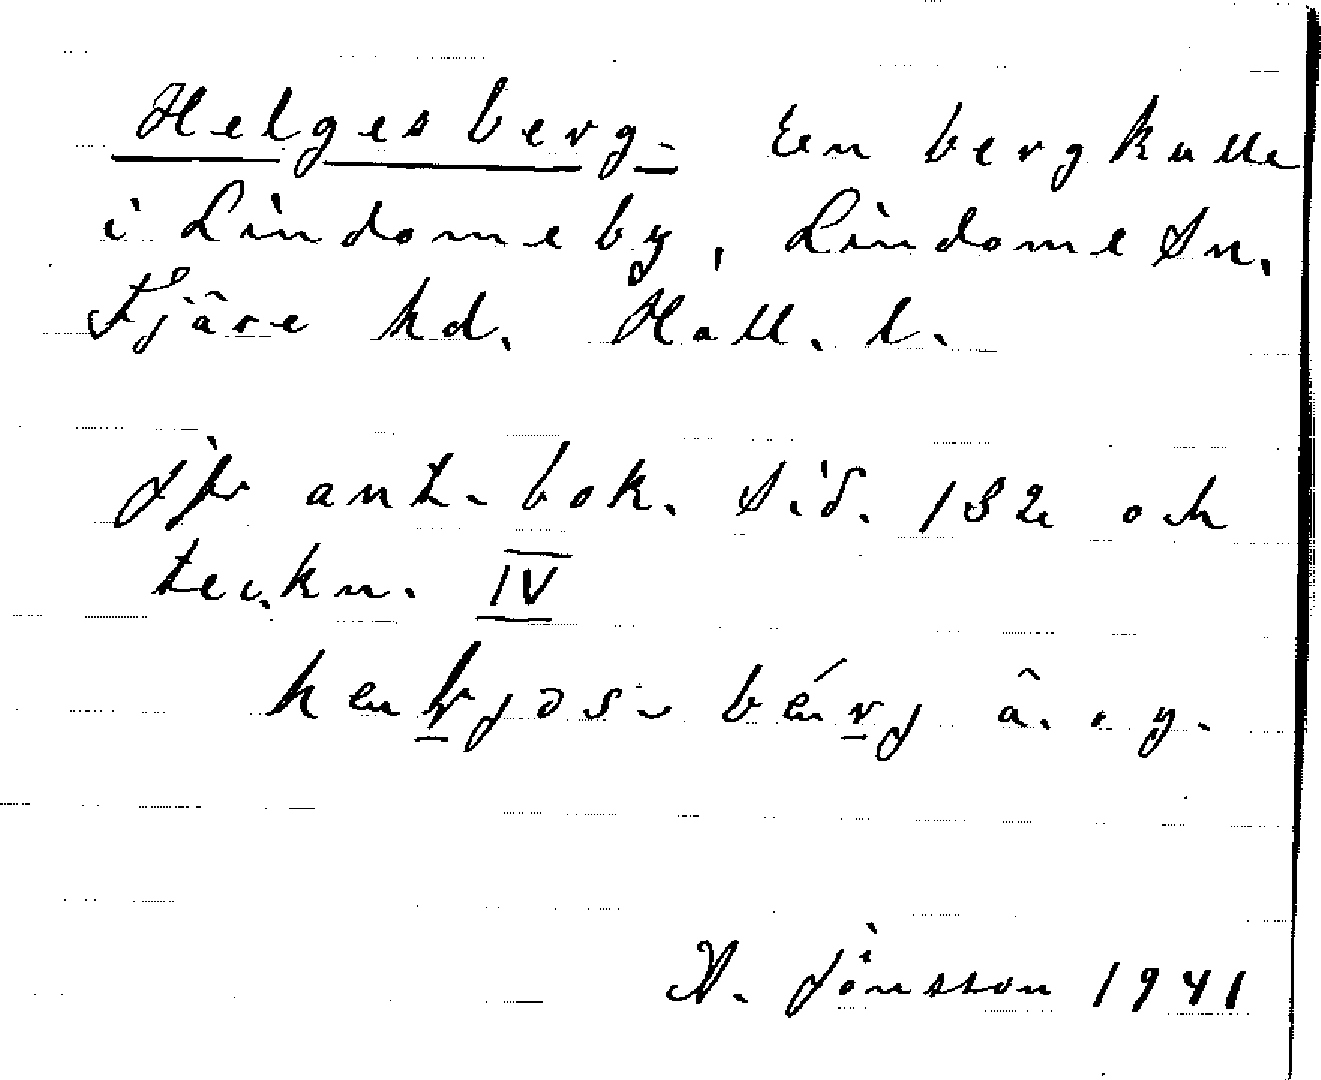 Helgesberg. En bergkulle
i Lindome by, Lindome sn.
Fjäre hd. Hall. l.
Jfr ant. bok. sid. 132 och
teckn. IV
bérj
A. Jönsson 1941